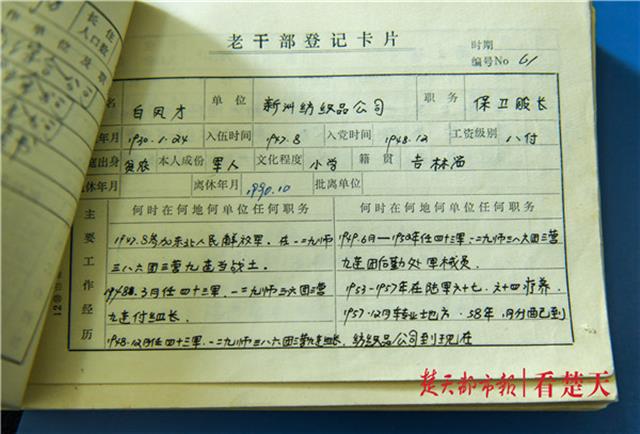 老干部登记卡片
时期
编号No 61
名 白凤才 单位 新洲纺织品公司 职务 保卫股长
年月 1930.1.24 入伍时间 1947.8 入党时间 1948.12 工资级别 八付
庭出身 贫农 本人成份 军人 文化程度 小学 籍贯 吉林
休年月 离休年月 1990.10 批离单位
主要工作经历
何时在何地何单位任何职务 何时在何地何单位任何职务
1947.8参加东北人民解放军.在一二九师
三八六团三营九连当战士.
1948年.3月任四十三军.一二九师三六团三营
九连付组长.
1948.12月任四十三军.一二九师三八六团三营九连组长.
1949.6月—1950年任四十三军.一二九师三八六团三营
九连团后勤处军械员.
1953-1957年在陆军六十七.六十四疗养.
1957.12月转业地方.58年.月分配到
纺织品公司到现在
长住人口数
楚天都市报|看楚天